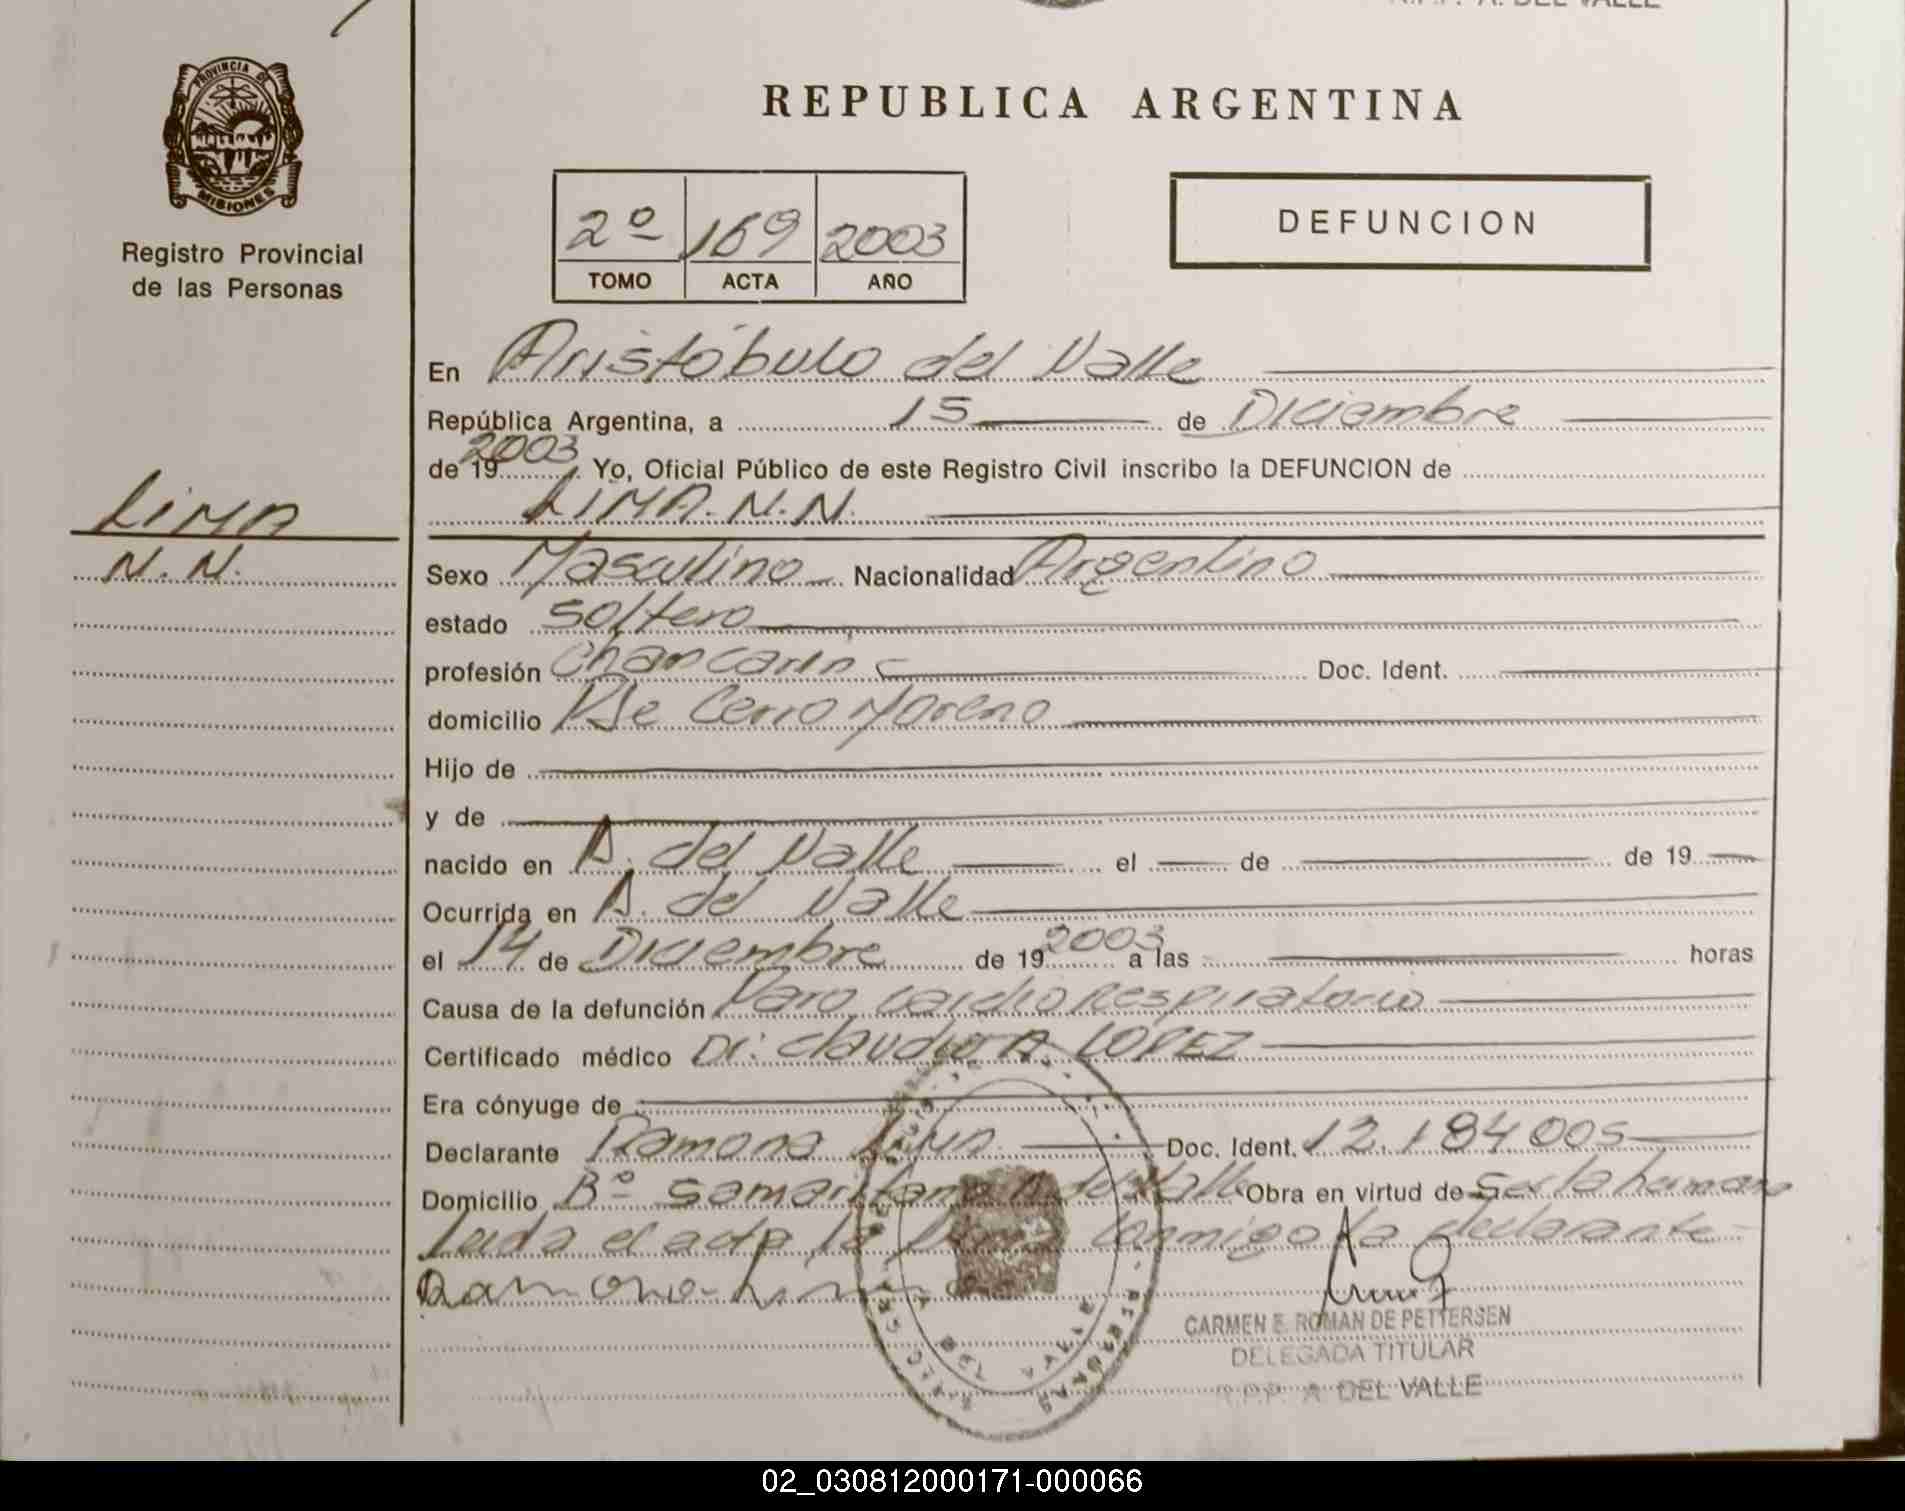 R.P.P. A. DEL VALLE
PROVINCIA DE
MISIONES
Registro Provincial
de las Personas
REPUBLICA ARGENTINA
2º 169 2003
TOMO ACTA AÑO
DEFUNCION
En Aristóbulo del Valle
República Argentina, a 15 de Diciembre
de 19 2003. Yo, Oficial Público de este Registro Civil inscribo la DEFUNCION de
LIMA. N.N.
LIMA
N. N.
Sexo Masculino Nacionalidad Argentino
estado soltero
profesión Doc. Ident.
domicilio Pje Cerro Moreno
Hijo de
y de
nacido en A. del Valle el de de 19
Ocurrida en A. del Valle
el 14 de Diciembre de 19 2003 a las horas
Causa de la defunción Paro cardio Respiratorio
Certificado médico Dr. Claudio A. LOPEZ
Era cónyuge de
Declarante Ramona Doc. Ident. 12.184.005
Domicilio Bº Samaritano A. del Valle Obra en virtud de ser la hermana
Leida el acta la firma conmigo la declarante
Ramona Lima
CARMEN E. ROMAN DE PETTERSEN
DELEGADA TITULAR
R.P.P. A. DEL VALLE
02_030812000171-000066